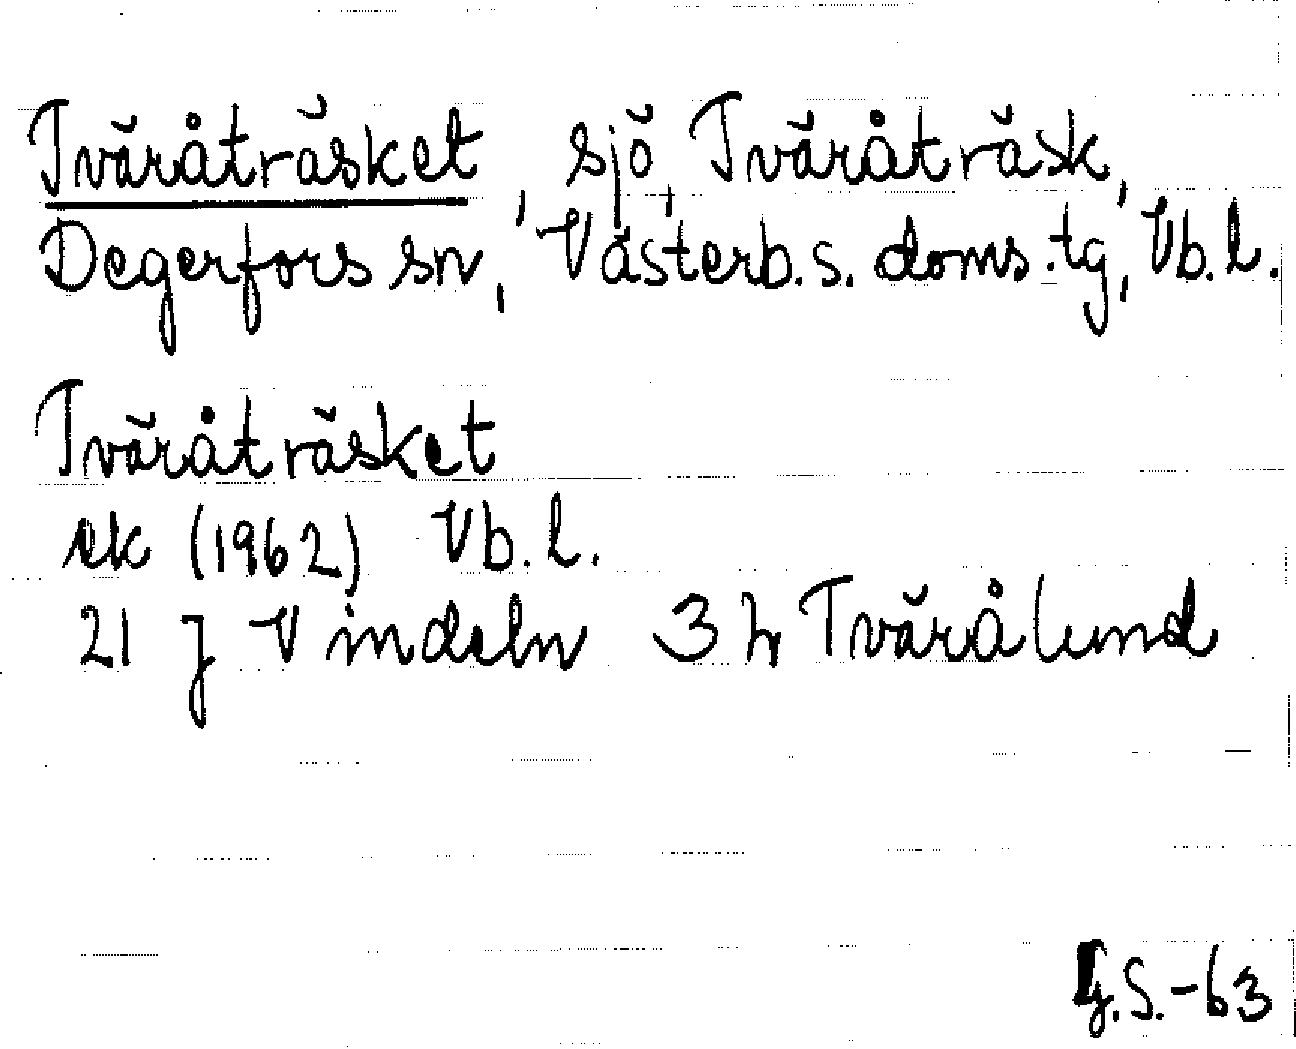 Tväråträsket, sjö, Tväråträsk,
Degerfors sn, Västerb. s. doms. tg, Vb. l.
Tväråträsket
ek (1962) Vb. l.
21 J Vindeln 3 h Tvärålund
G.S.-63